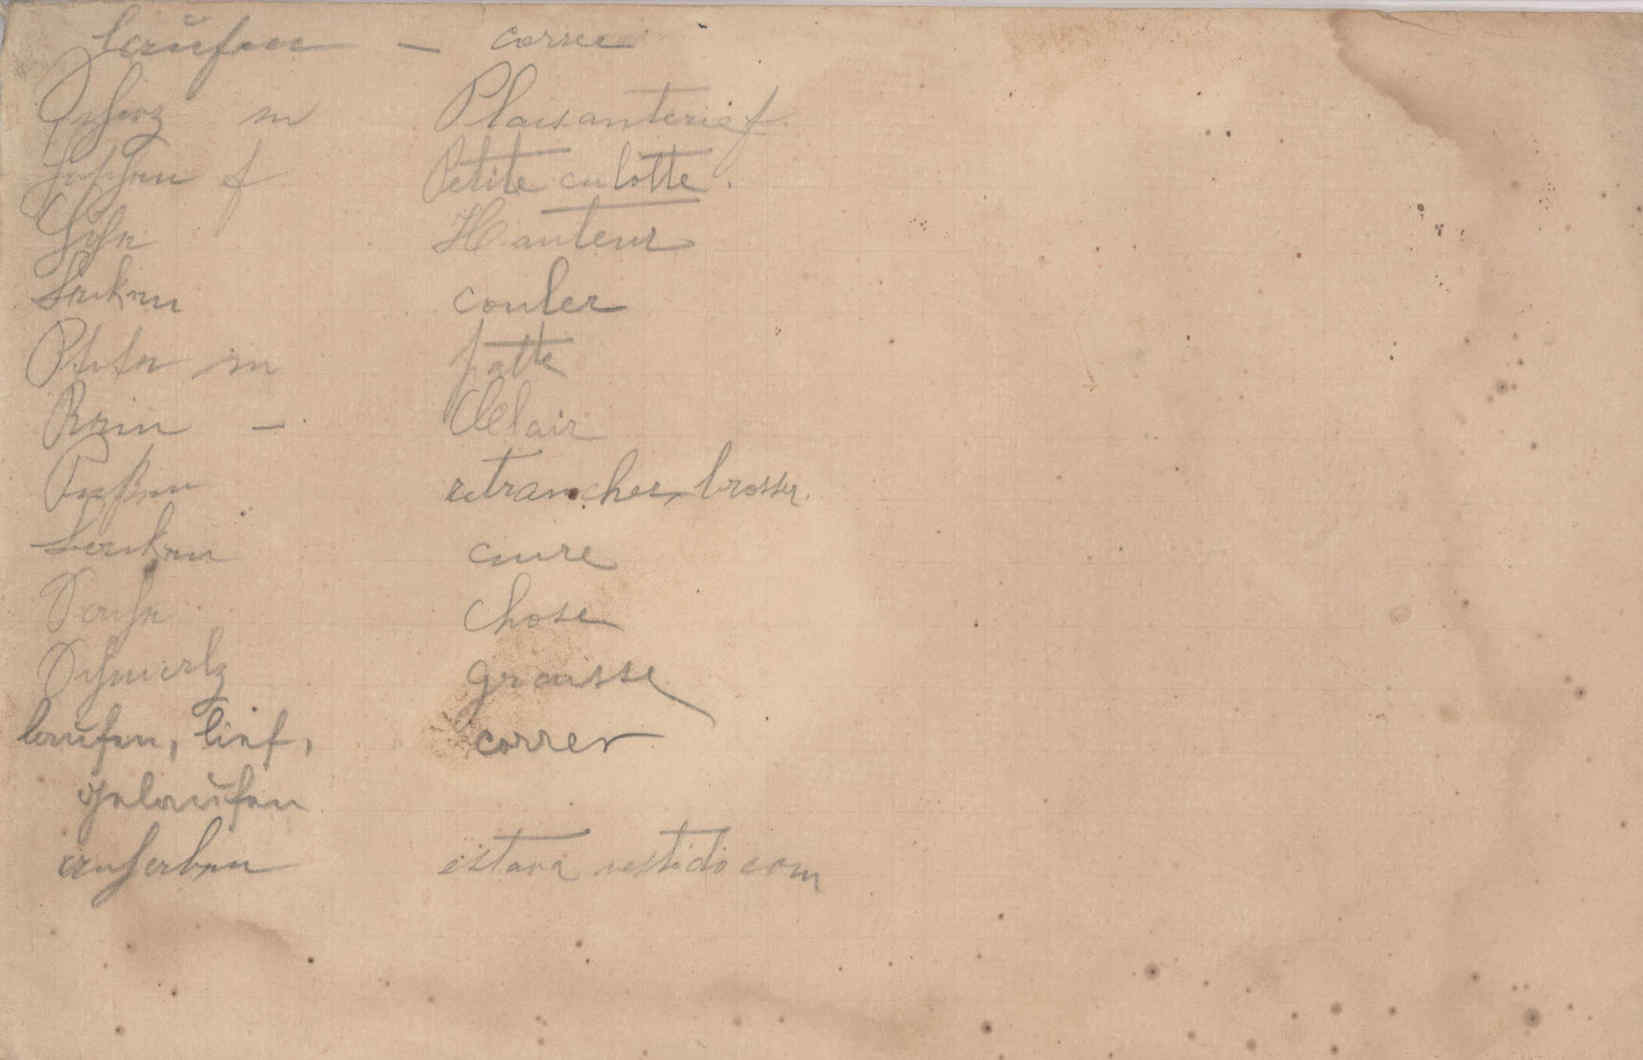 laufen — correr
Scherz m Plaisanterie f.
Höschen f Petite culotte.
Höhe Hauteur
Sinken couler
Pfoten m patte
Rein — Clair
Putzen retrancher, brosser.
Backen cuire
Sache Chose
Schmerlz Graisse
laufen, lief, correr
gelaufen
anhaben estava vestido com